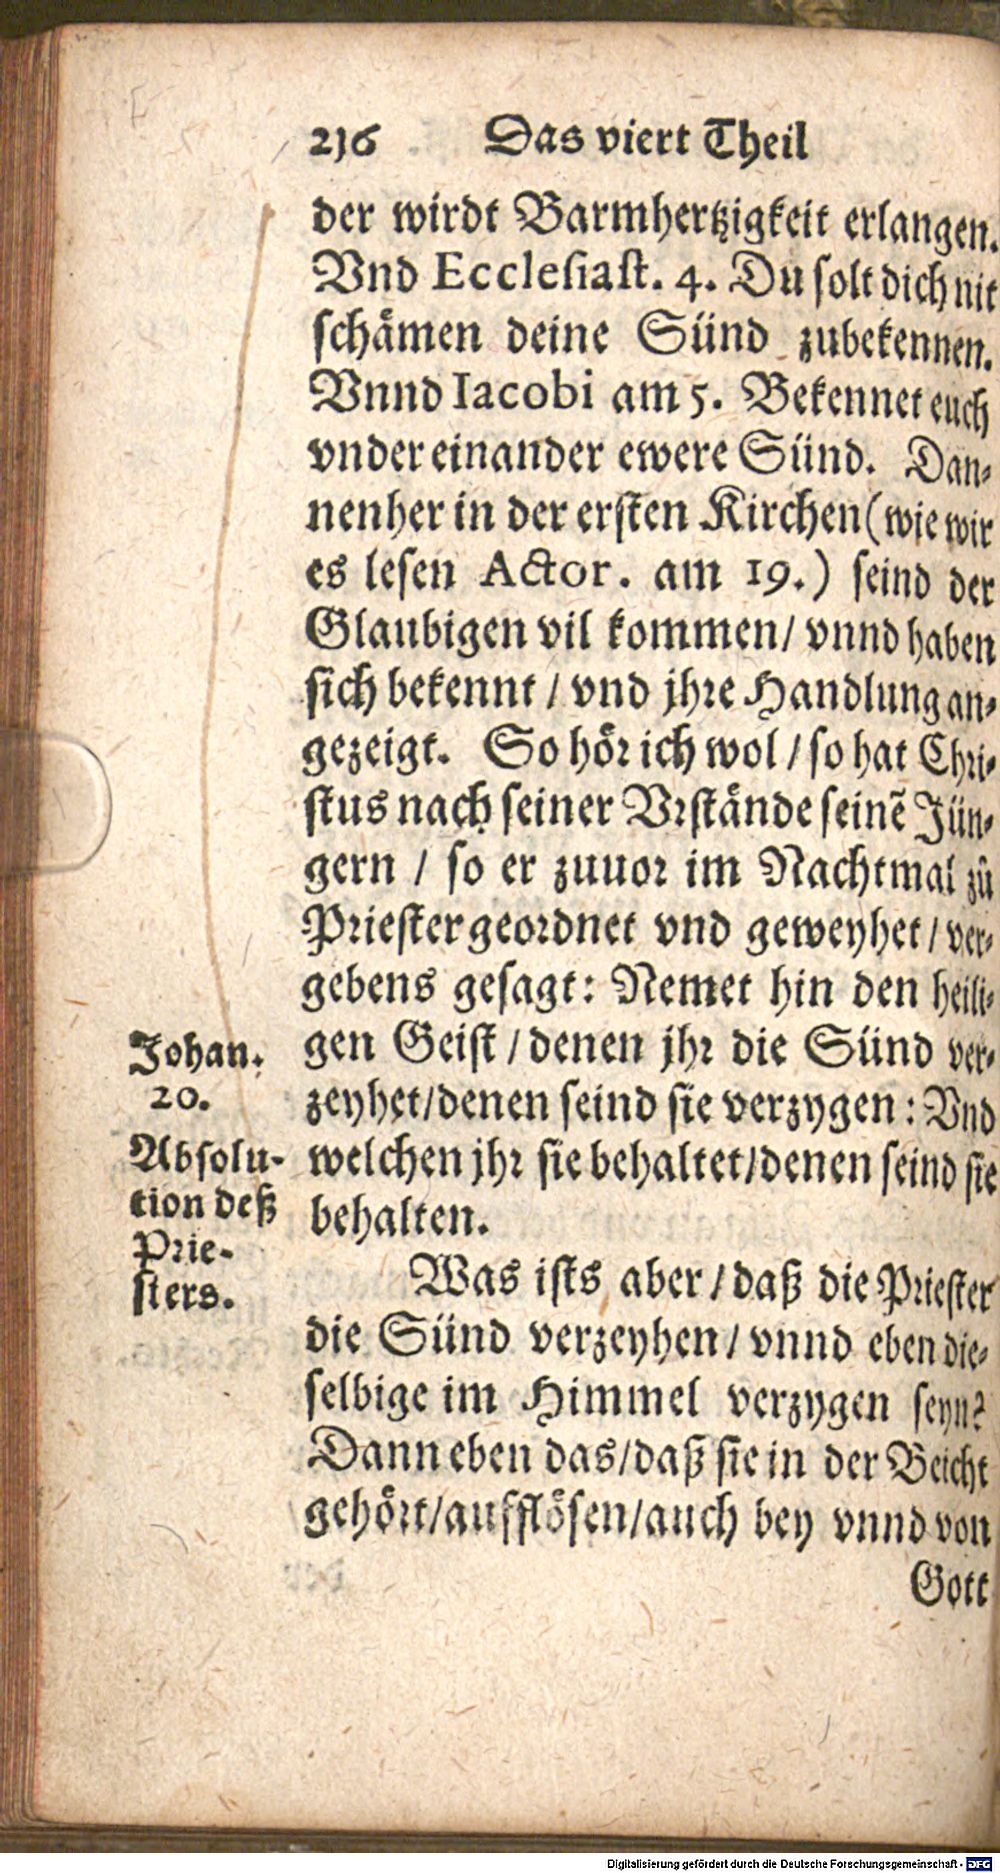 216 Das viert Theil
der wirdt Barmhertzigkeit erlangen.
Vnd Ecclesiast. 4. Du solt dich nit
schämen deine Sünd zubekennen.
Vnnd Iacobi am 5. Bekennet euch
vnder einander ewere Sünd. Dan-
nenher in der ersten Kirchen (wie wir
es lesen Actor. am 19.) seind der
Glaubigen vil kommen/ vnnd haben
sich bekennt / vnd jhre Handlung an-
gezeigt. So hör ich wol / so hat Chri-
stus nach seiner Vrstände seinẽ Jün-
gern / so er zuuor im Nachtmal zů
Priester geordnet vnd geweyhet / ver-
gebens gesagt: Nemet hin den heili-
gen Geist / denen jhr die Sünd ver-
zeyhet/denen seind sie verzygen: Vnd
welchen jhr sie behaltet/denen seind sie
behalten.
Johan.
20.
Absolu-
tion deß
Prie-
sters.
Was ists aber / daß die Priester
die Sünd verzeyhen/ vnnd eben die-
selbige im Himmel verzygen seyn?
Dann eben das/daß sie in der Beicht
gehört/aufflösen/auch bey vnnd von
Gott
Digitalisierung gefördert durch die Deutsche Forschungsgemeinschaft - DFG